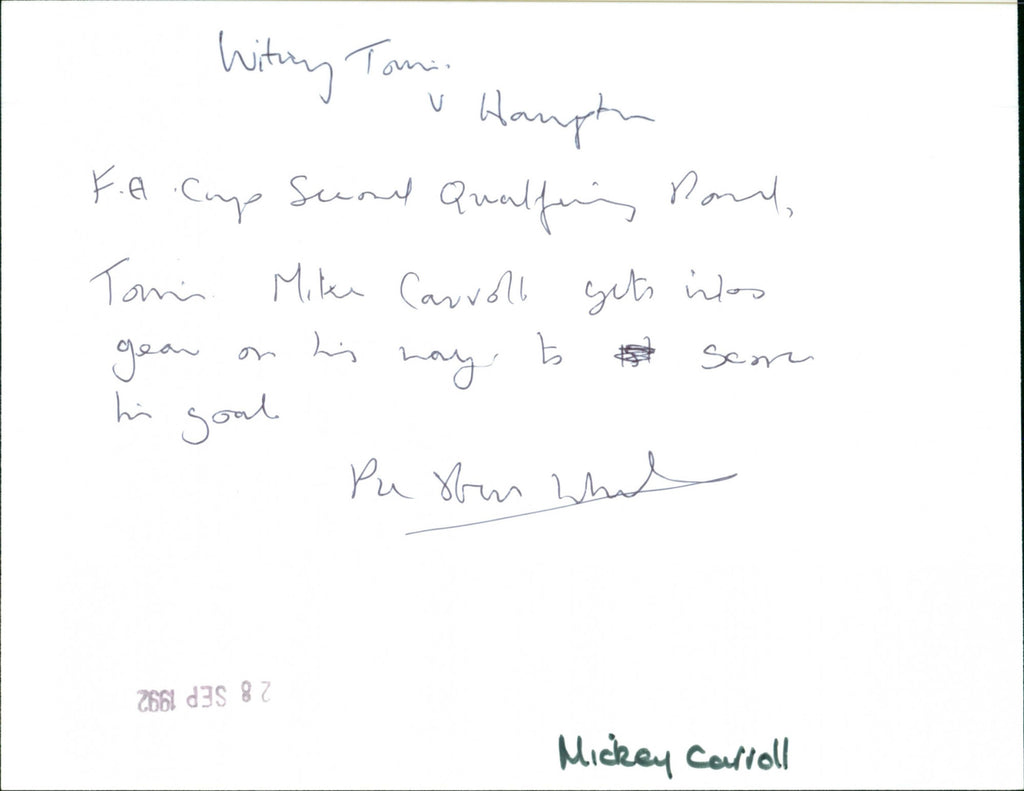 Witney Town
v Hampton
F.A. Cup Second Qualifying Round,
Town's Mike Carroll gets into
gear on his way to score
his goal
Pic
28 SEP 1992
Mickey Carroll